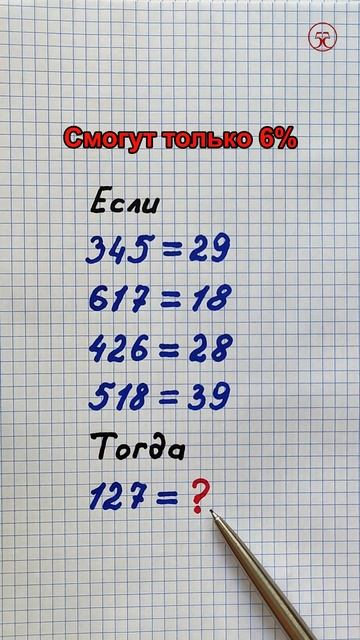 Смогут только 6%
Если
345 = 29
617 = 18
426 = 28
518 = 39
Тогда
127 = ?